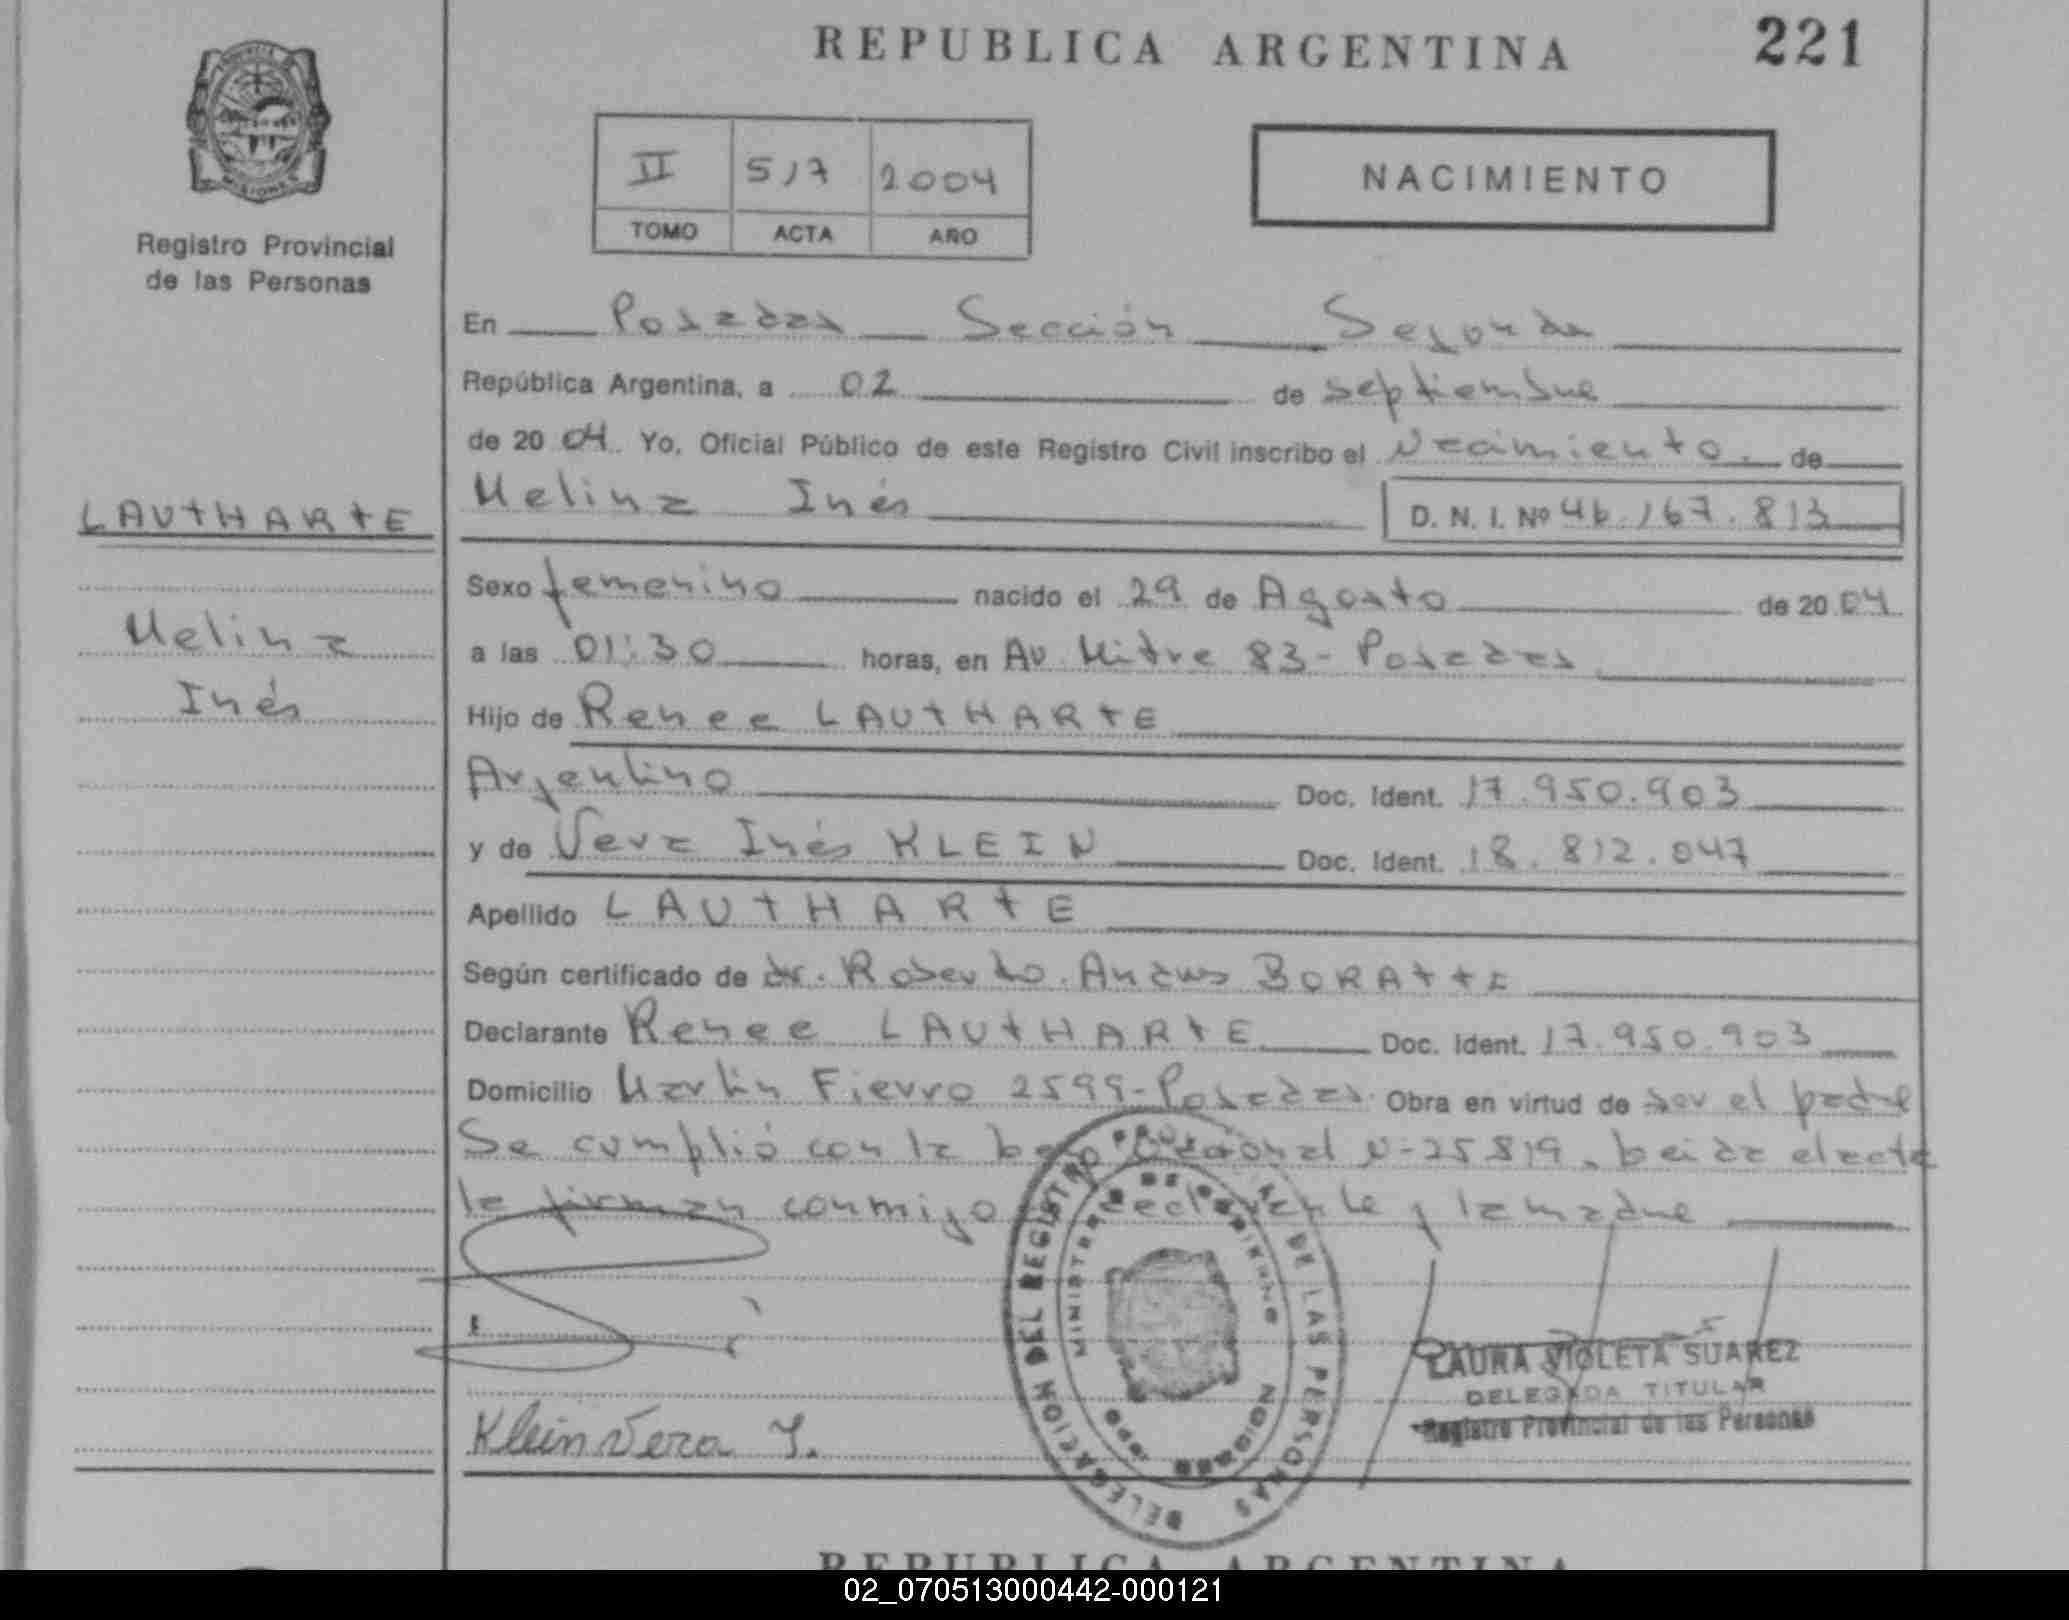 REPUBLICA ARGENTINA
221
II 517 2004
TOMO ACTA AÑO
NACIMIENTO
PROVINCIA DE
MISIONES
Registro Provincial
de las Personas
LAUTHARTE
Melina
Inés
En Posadas Sección Segunda
República Argentina, a 02 de septiembre
de 20 04. Yo, Oficial Público de este Registro Civil inscribo el Nacimiento. de
Melina Inés D. N. I. Nº 46.167.813
Sexo femenino nacido el 29 de Agosto de 20 04
a las 01:30 horas, en Av. Mitre 83 - Posadas
Hijo de Renee LAUTHARTE
Argentino Doc. Ident. 17.950.903
y de Vera Inés KLEIN Doc. Ident. 18.812.047
Apellido LAUTHARTE
Según certificado de dr. Roberto BORATTE
Declarante Renee LAUTHARTE Doc. Ident. 17.950.903
Domicilio Martin Fierro 2599 - Posadas. Obra en virtud de ser el padre
Se cumplió con la Ley Nacional N-25819. Leida el acta
la firman conmigo declarante y la madre
Klein Vera I.
DELEGACION DEL REGISTRO PROVINCIAL DE LAS PERSONAS
LAURA VIOLETA SUAREZ
DELEGADA TITULAR
Registro Provincial de las Personas
REPUBLICA ARGENTINA
02_070513000442-000121